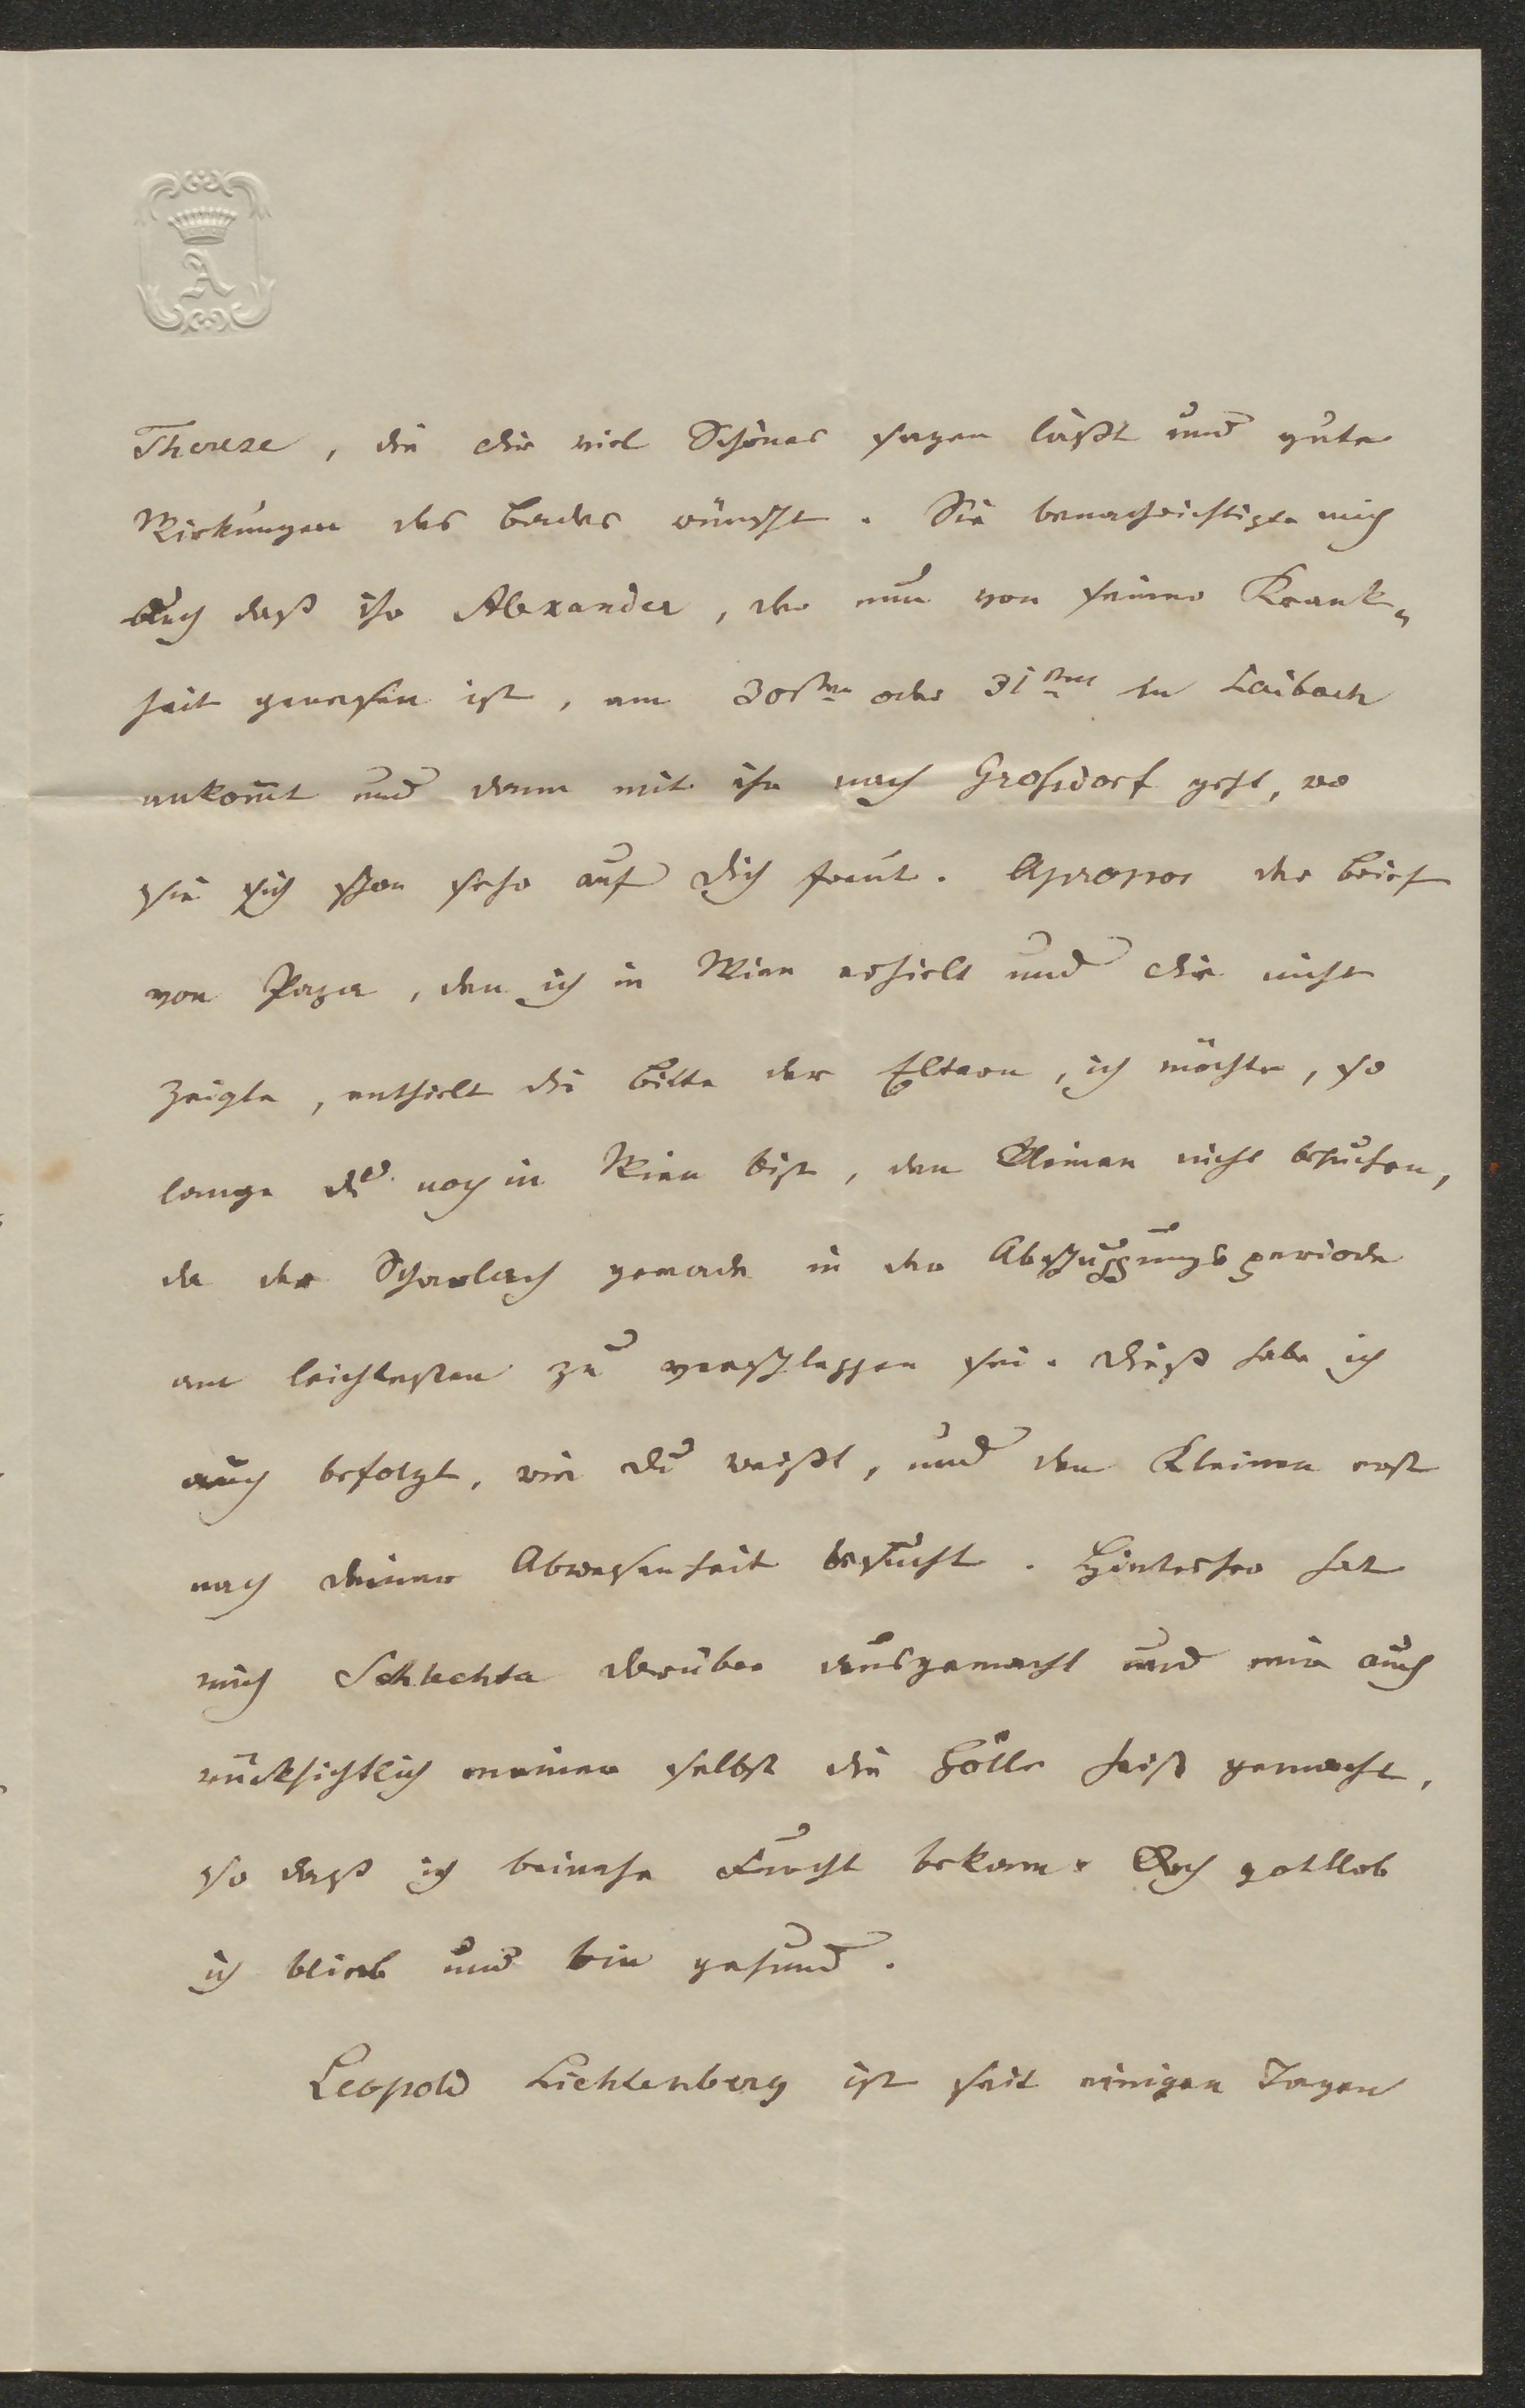 A
Therese, die dir viel Schönes sagen läßt und gute
Wirkungen des Bades wünscht. Sie benachrichtigte mich
auch daß ihr Alexander, der nun von seiner Krank¬
heit genesen ist, am 30sten oder 31sten in Laibach
ankomt und dann mit ihr nach Großdorf geht, wo
sie sich schon sehr auf dich freut. Apropos der Brief
von Papa, den ich in Wien erhielt und dir nicht
zeigte, enthielt die Bitte der Eltern, ich möchte, so
lange du noch in Wien bist, den Kleinen nicht besuchen,
da der Scharlach gerade in der Abschuppungsperiode
am leichtesten zu verschleppen sei. Dieß habe ich
auch befolgt, wie du weißt, und den Kleinen erst
nach deiner Abwesenheit besucht. Hinterher hat
mich Schlechta darüber ausgemacht und mir auch
rücksichtlich meiner selbst die Hölle heiß gemacht,
so daß ich beinahe Furcht bekam. Doch gottlob
ich blieb und bin gesund.
Leopold Lichtenberg ist seit einigen Tagen